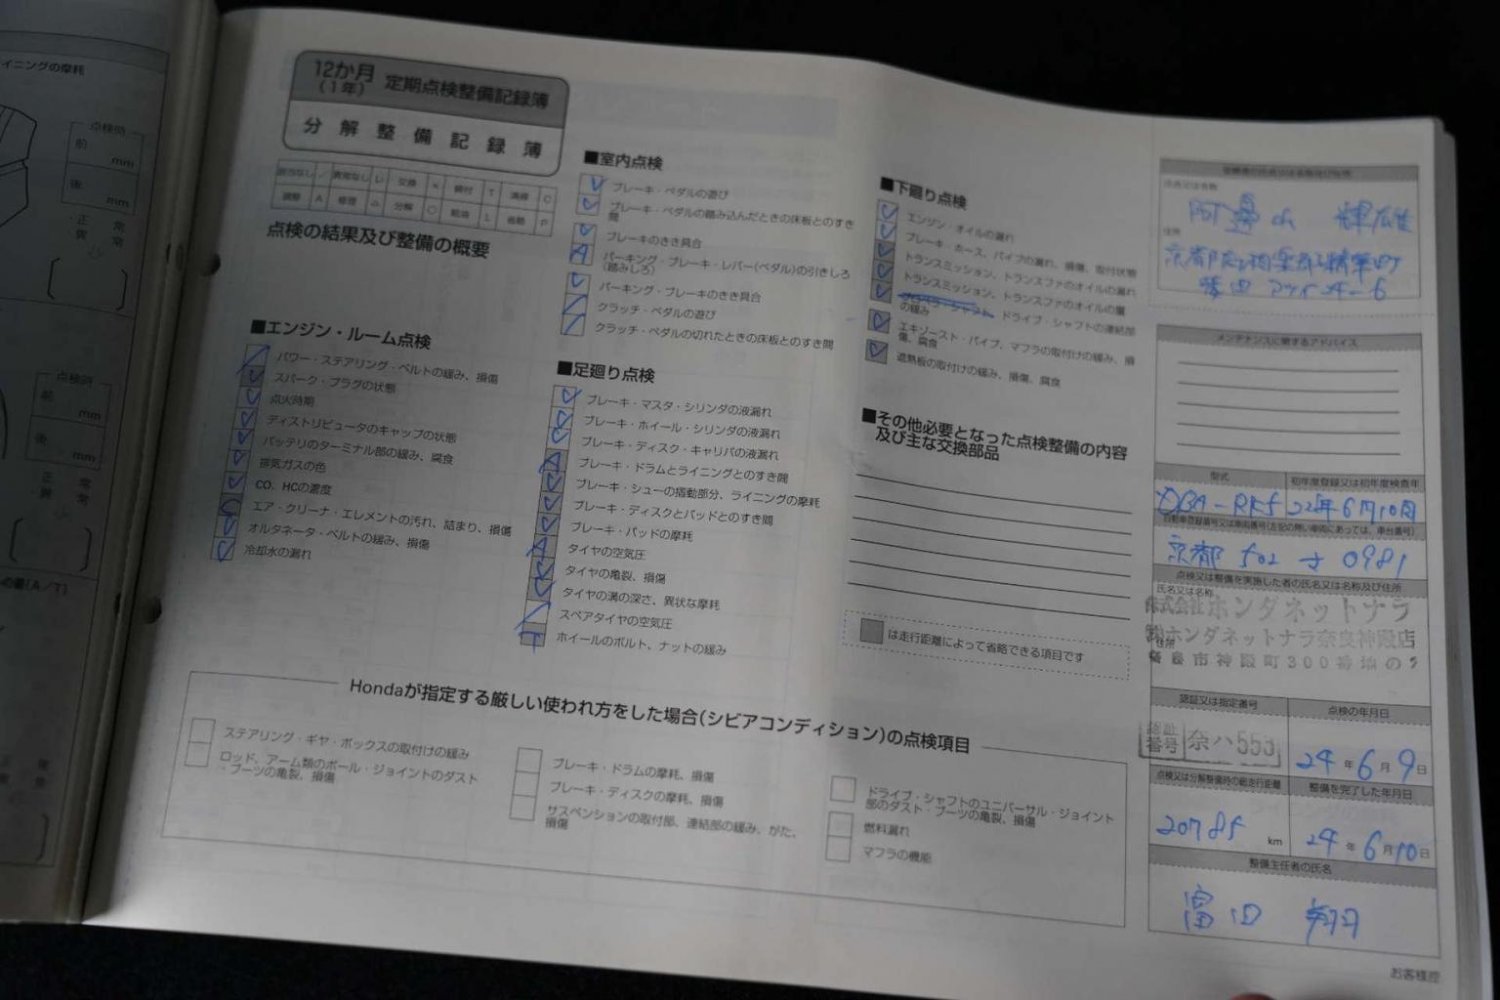 イニングの摩耗
点検時
前
mm
後
mm
正常
異常
点検時
前
mm
後
mm
正常
異常
12か月
(1年)
定期点検整備記録簿
分解整備記録簿
該当なし / 異常なし レ 交換 × 締付 T 清掃 C
調整 A 修理 △ 分解 ○ 給油 L 省略 P
点検の結果及び整備の概要
■エンジン・ルーム点検
パワー・ステアリング・ベルトの緩み、損傷
スパーク・プラグの状態
点火時期
ディストリビュータのキャップの状態
バッテリのターミナル部の緩み、腐食
排気ガスの色
CO、HCの濃度
エア・クリーナ・エレメントの汚れ、詰まり、損傷
オルタネータ・ベルトの緩み、損傷
冷却水の漏れ
■室内点検
ブレーキ・ペダルの遊び
ブレーキ・ペダルの踏み込んだときの床板とのすき
間
ブレーキのきき具合
パーキング・ブレーキ・レバー(ペダル)の引きしろ
(踏みしろ)
パーキング・ブレーキのきき具合
クラッチ・ペダルの遊び
クラッチ・ペダルの切れたときの床板とのすき間
■足廻り点検
ブレーキ・マスタ・シリンダの液漏れ
ブレーキ・ホイール・シリンダの液漏れ
ブレーキ・ディスク・キャリパの液漏れ
ブレーキ・ドラムとライニングとのすき間
ブレーキ・シューの摺動部分、ライニングの摩耗
ブレーキ・ディスクとパッドとのすき間
ブレーキ・パッドの摩耗
タイヤの空気圧
タイヤの亀裂、損傷
タイヤの溝の深さ、異状な摩耗
スペアタイヤの空気圧
ホイールのボルト、ナットの緩み
■下廻り点検
エンジン・オイルの漏れ
ブレーキ・ホース、パイプの漏れ、損傷、取付状態
トランスミッション、トランスファのオイルの漏れ
トランスミッション、トランスファのオイルの量
ドライブ・シャフトの連結部
の緩み
エキゾースト・パイプ、マフラの取付けの緩み、損
傷、腐食
遮熱板の取付けの緩み、損傷、腐食
■その他必要となった点検整備の内容
及び主な交換部品
は走行距離によって省略できる項目です
Hondaが指定する厳しい使われ方をした場合(シビアコンディション)の点検項目
ステアリング・ギヤ・ボックスの取付けの緩み
ロッド、アーム類のボール・ジョイントのダスト
・ブーツの亀裂、損傷
ブレーキ・ドラムの摩耗、損傷
ブレーキ・ディスクの摩耗、損傷
サスペンションの取付部、連結部の緩み、がた、
損傷
ドライブ・シャフトのユニバーサル・ジョイント
部のダスト・ブーツの亀裂、損傷
燃料漏れ
マフラの機能
氏名又は名称
住所
メンテナンスに関するアドバイス
型式
初年度登録又は初年度検査年
DBA-RK5
22年6月10日
京都 502 さ 0981
点検又は整備を実施した者の氏名又は名称及び住所
氏名又は名称
株式会社ホンダネットナラ
㈱ホンダネットナラ奈良神殿店
住所
奈良市神殿町300番地の
認証又は指定番号
点検の年月日
認証
番号
奈ハ553
24年6月9日
点検又は分解整備時の総走行距離
整備を完了した年月日
20785 km
24年6月10日
整備主任者の氏名
お客様控